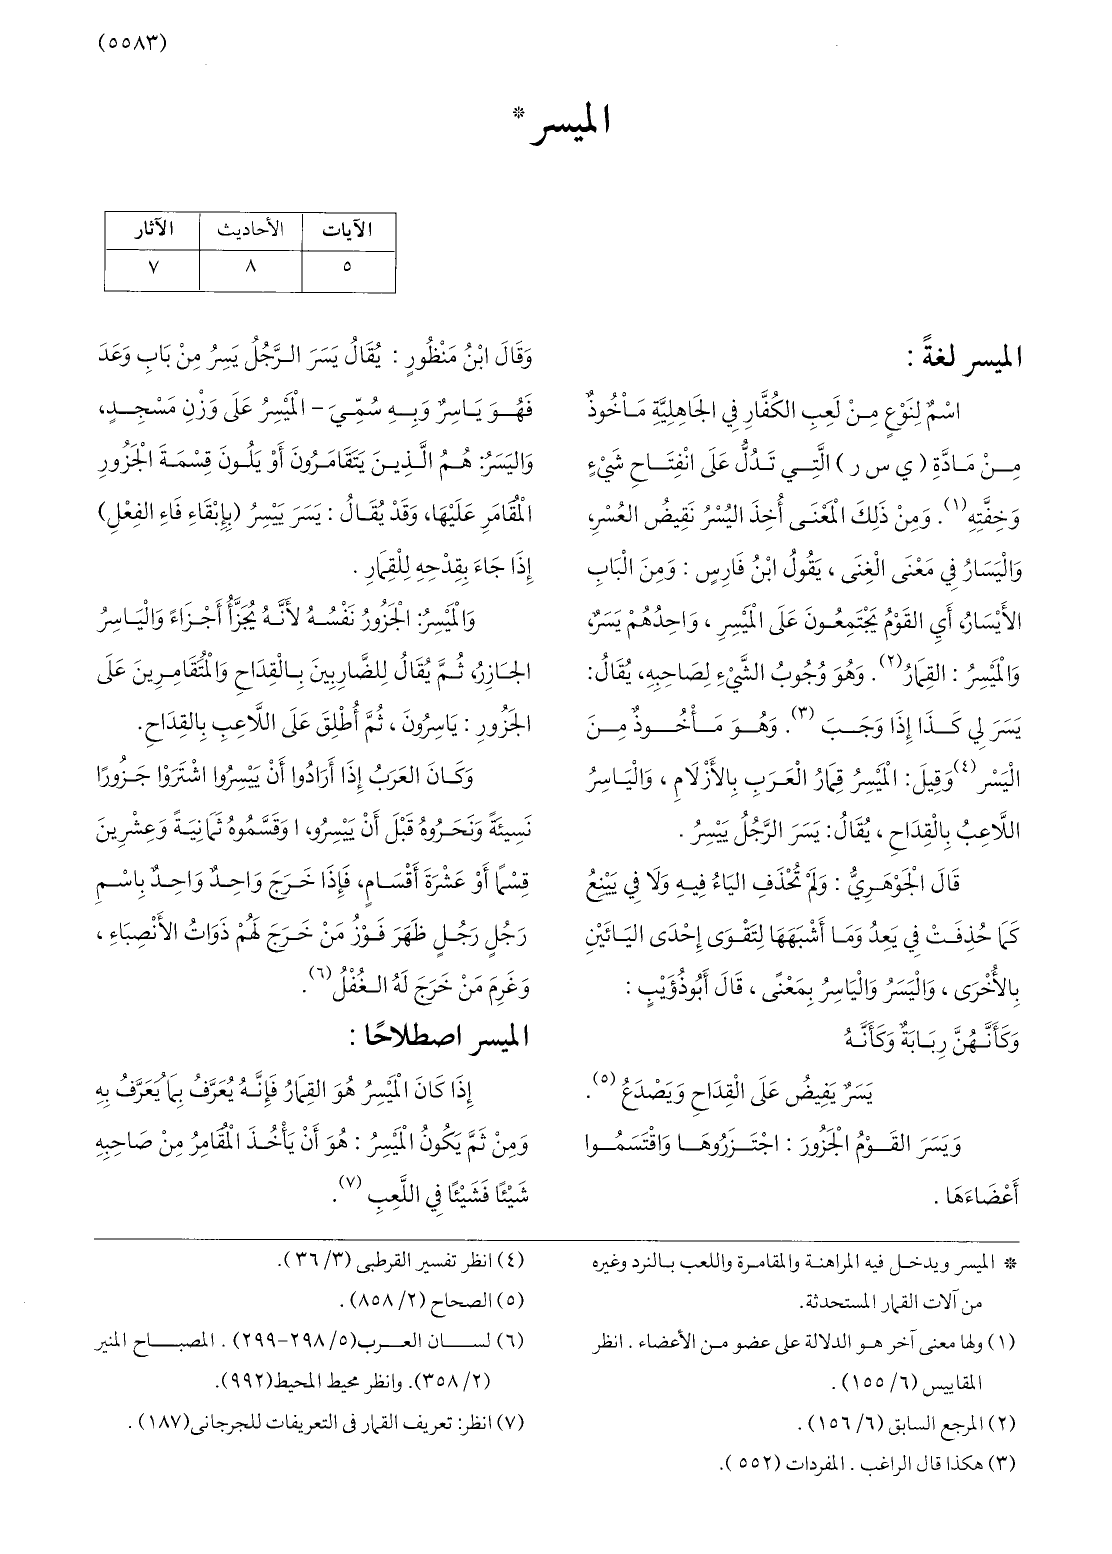 (٥٥٨٣)
الميسر *
الآيات الأحاديث الآثار
٥ ٨ ٧
الميسر لغةً :
اسْمٌ لِنَوْعٍ مِنْ لَعِبِ الكُفَّارِ فِي الجَاهِلِيَّةِ مَأْخُوذٌ
مِنْ مَادَّةِ ( ي س ر ) الَّتِي تَدُلُّ عَلَى انْفِتَاحِ شَيْءٍ
وَخِفَّتِهِ(١). وَمِنْ ذَلِكَ الْمَعْنَى أُخِذَ اليُسْرُ نَقِيضُ العُسْرِ،
وَالْيَسَارُ فِي مَعْنَى الْغِنَى ، يَقُولُ ابْنُ فَارِسٍ : وَمِنَ الْبَابِ
الأَيْسَارُ، أَيِ القَوْمُ يَجْتَمِعُونَ عَلَى الْمَيْسِرِ ، وَاحِدُهُمْ يَسَرٌ،
وَالْمَيْسِرُ : القِمَارُ(٢). وَهُوَ وُجُوبُ الشَّيْءِ لِصَاحِبِهِ، يُقَالُ:
يَسَرَ لِي كَذَا إِذَا وَجَبَ (٣). وَهُوَ مَأْخُوذٌ مِنَ
الْيَسْرِ(٤) وَقِيلَ: الْمَيْسِرُ قِمَارُ الْعَرَبِ بِالأَزْلَامِ ، وَالْيَاسِرُ
اللَّاعِبُ بِالْقِدَاحِ ، يُقَالُ: يَسَرَ الرَّجُلُ يَيْسِرُ .
قَالَ الْجَوْهَرِيُّ : وَلَمْ تُحْذَفِ اليَاءُ فِيهِ وَلَا فِي يَيْنِعُ
كَمَا حُذِفَتْ فِي يَعِدُ وَمَا أَشْبَهَهَا لِتَقْوَى إِحْدَى اليَائَيْنِ
بِالأُخْرَى ، وَالْيَسَرُ وَالْيَاسِرُ بِمَعْنًى ، قَالَ أَبُوذُؤَيْبٍ :
وَكَأَنَّهُنَّ رِبَابَةٌ وَكَأَنَّهُ
يَسَرٌ يَفِيضُ عَلَى الْقِدَاحِ وَيَصْدَعُ (٥).
وَيَسَرَ القَوْمُ الْجَزُورَ : اجْتَزَرُوهَا وَاقْتَسَمُوا
أَعْضَاءَهَا .
وَقَالَ ابْنُ مَنْظُورٍ : يُقَالُ يَسَرَ الرَّجُلُ يَسِرُ مِنْ بَابِ وَعَدَ
فَهُوَ يَاسِرٌ وَبِهِ سُمِّيَ - الْمَيْسِرُ عَلَى وَزْنِ مَسْجِدٍ،
وَاليَسَرُ: هُمُ الَّذِينَ يَتَقَامَرُونَ أَوْ يَلُونَ قِسْمَةَ الْجَزُورِ
الْمُقَامَرِ عَلَيْهَا، وَقَدْ يُقَالُ : يَسَرَ يَيْسِرُ (بِإِبْقَاءِ فَاءِ الفِعْلِ)
إِذَا جَاءَ بِقِدْحِهِ لِلْقِمَارِ .
وَالْمَيْسِرُ: الْجَزُورُ نَفْسُهُ لأَنَّهُ يُجَزَّأُ أَجْزَاءً وَالْيَاسِرُ
الجَازِرُ، ثُمَّ يُقَالُ لِلضَّارِبِينَ بِالْقِدَاحِ وَالْمُتَقَامِرِينَ عَلَى
الجَزُورِ : يَاسِرُونَ ، ثُمَّ أُطْلِقَ عَلَى اللَّاعِبِ بِالقِدَاحِ.
وَكَانَ العَرَبُ إِذَا أَرَادُوا أَنْ يَيْسِرُوا اشْتَرَوْا جَزُورًا
نَسِيئَةً وَنَحَرُوهُ قَبْلَ أَنْ يَيْسِرُو، ا وَقَسَّمُوهُ ثَمَانِيَةً وَعِشْرِينَ
قِسْمًا أَوْ عَشْرَةَ أَقْسَامٍ، فَإِذَا خَرَجَ وَاحِدٌ وَاحِدٌ بِاسْمِ
رَجُلٍ رَجُلٍ ظَهَرَ فَوْزُ مَنْ خَرَجَ لَهُمْ ذَوَاتُ الأَنْصِبَاءِ ،
وَغَرِمَ مَنْ خَرَجَ لَهُ الغُفْلُ(٦).
الميسر اصطلاحًا :
إِذَا كَانَ الْمَيْسِرُ هُوَ القِمَارُ فَإِنَّهُ يُعَرَّفُ بِمَا يُعَرَّفُ بِهِ
وَمِنْ ثَمَّ يَكُونُ الْمَيْسِرُ : هُوَ أَنْ يَأْخُذَ الْمُقَامِرُ مِنْ صَاحِبِهِ
شَيْئًا فَشَيْئًا فِي اللَّعِبِ (٧).
* الميسر ويدخل فيه المراهنة والمقامرة واللعب بالنرد وغيره
من آلات القمار المستحدثة.
(١) ولها معنى آخر هو الدلالة على عضو من الأعضاء . انظر
المقاييس (٦/ ١٥٥) .
(٢) المرجع السابق (٦/ ١٥٦) .
(٣) هكذا قال الراغب . المفردات (٥٥٢ ).
(٤) انظر تفسير القرطبى (٣/ ٣٦).
(٥) الصحاح (٢/ ٨٥٨) .
(٦) لسان العرب(٥/ ٢٩٨-٢٩٩) . المصباح المنير
(٢/ ٣٥٨). وانظر محيط المحيط(٩٩٢).
(٧) انظر: تعريف القمار فى التعريفات للجرجانى(١٨٧) .